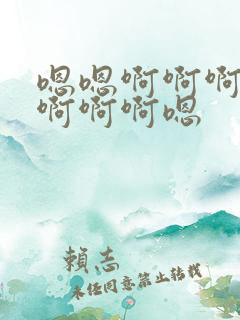 嗯嗯啊啊啊
啊啊啊嗯
賴志
未经同意禁止转载